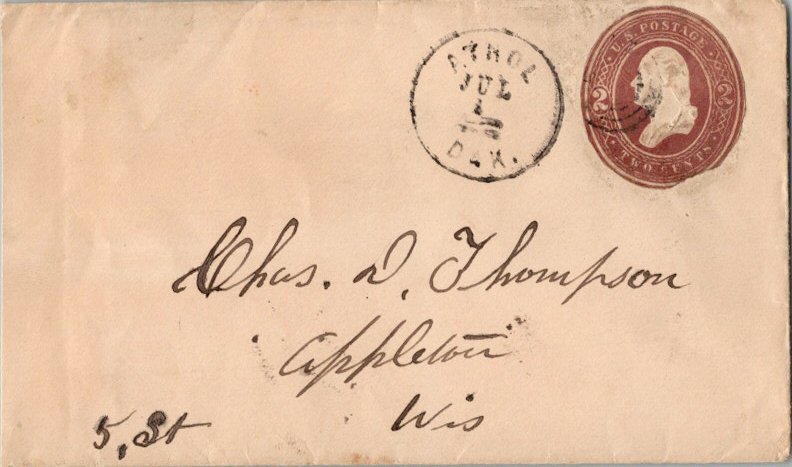 ATHOL
JUL
DAK.
U.S. POSTAGE
2 2
TWO CENTS
Chas. D. Thompson
Appleton
Wis
5, St